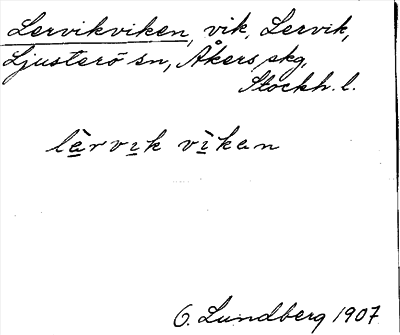 Lervikviken, vik, Lervik,
Ljusterö sn, Åkers skg,
Stockh. l.
lèrvık vìkan
G. Lundberg 1907